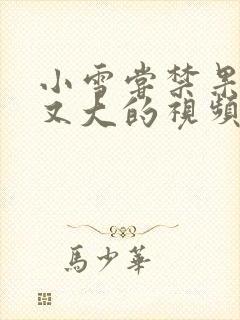 小雪嘗禁果
又大的視頻
馬少華